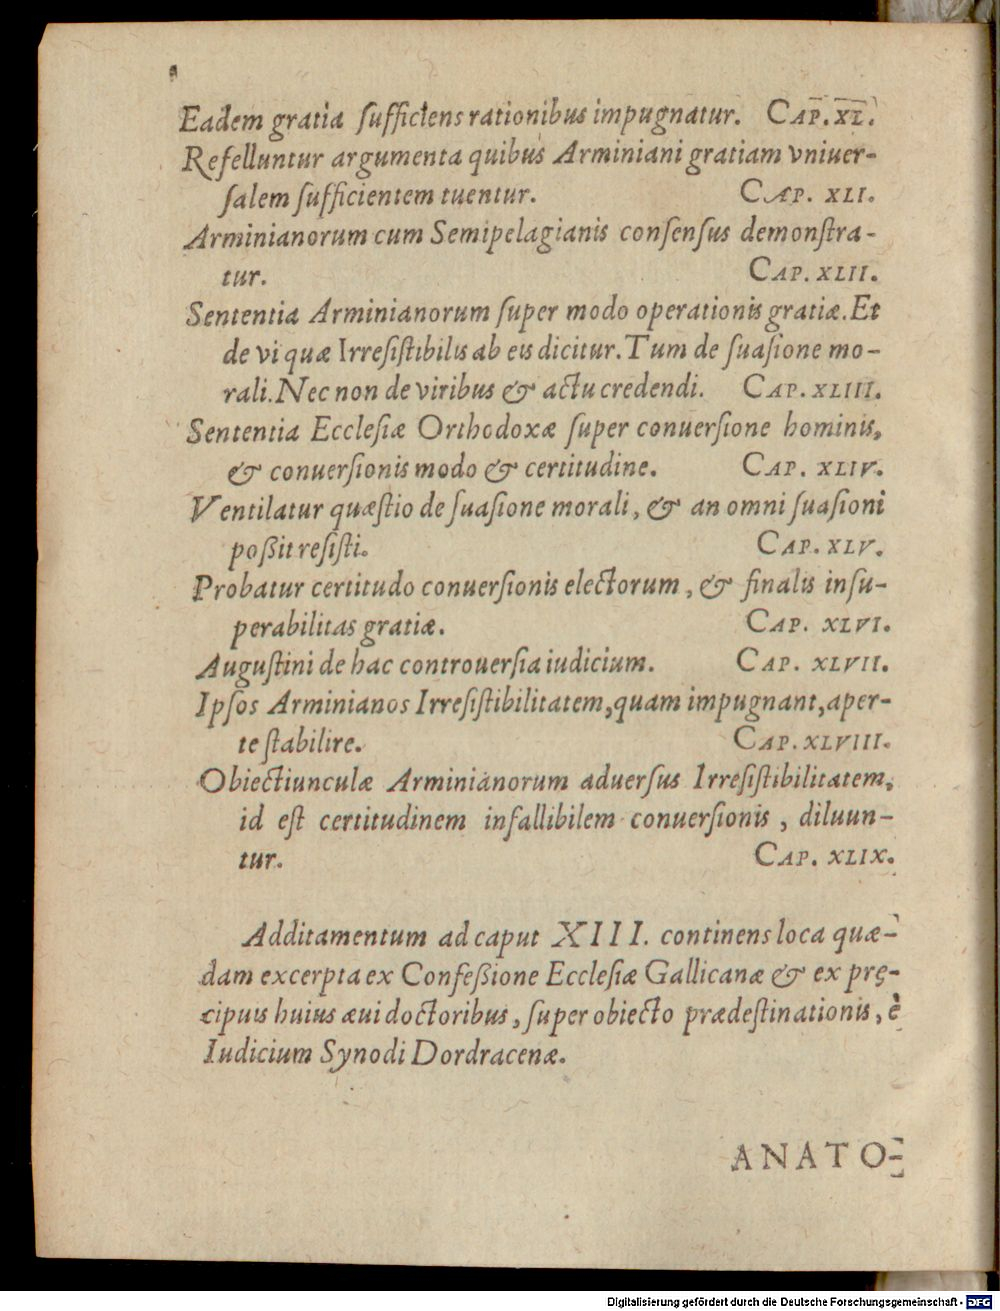 Eadem gratia ſufficiens rationibus impugnatur. CAP. XL.
Refelluntur argumenta quibus Arminiani gratiam vniuer-
ſalem ſufficientem tuentur. CAP. XLI.
Arminianorum cum Semipelagianis conſenſus demonſtra-
tur. CAP. XLII.
Sententia Arminianorum ſuper modo operationis gratiæ. Et
de vi quæ Irreſiſtibilis ab eis dicitur. Tum de ſuaſione mo-
rali. Nec non de viribus & actu credendi. CAP. XLIII.
Sententia Eccleſiæ Orthodoxæ ſuper conuerſione hominis,
& conuerſionis modo & certitudine. CAP. XLIV.
Ventilatur quæſtio de ſuaſione morali, & an omni ſuaſioni
poßit reſiſti. CAP. XLV.
Probatur certitudo conuerſionis electorum, & finalis inſu-
perabilitas gratiæ. CAP. XLVI.
Auguſtini de hac controuerſia iudicium. CAP. XLVII.
Ipſos Arminianos Irreſiſtibilitatem, quam impugnant, aper-
te ſtabilire. CAP. XLVIII.
Obiectiunculæ Arminianorum aduerſus Irreſiſtibilitatem,
id eſt certitudinem infallibilem conuerſionis, diluun-
tur. CAP. XLIX.
Additamentum ad caput XIII. continens loca quæ-
dam excerpta ex Confeßione Eccleſiæ Gallicanæ & ex prę-
cipuis huius æui doctoribus, ſuper obiecto prædeſtinationis, è
Iudicium Synodi Dordracenæ.
ANATO-
Digitalisierung gefördert durch die Deutsche Forschungsgemeinschaft - DFG